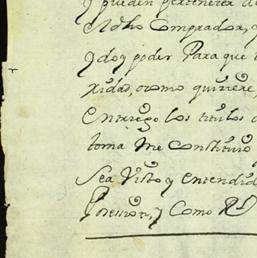 y pueden pertenecer a
dho Comprador, 
y doy poder Para que
como quisiere
entrego los titulos
toma me Constituio
Sea Visto y entendid
Posesion, y Como